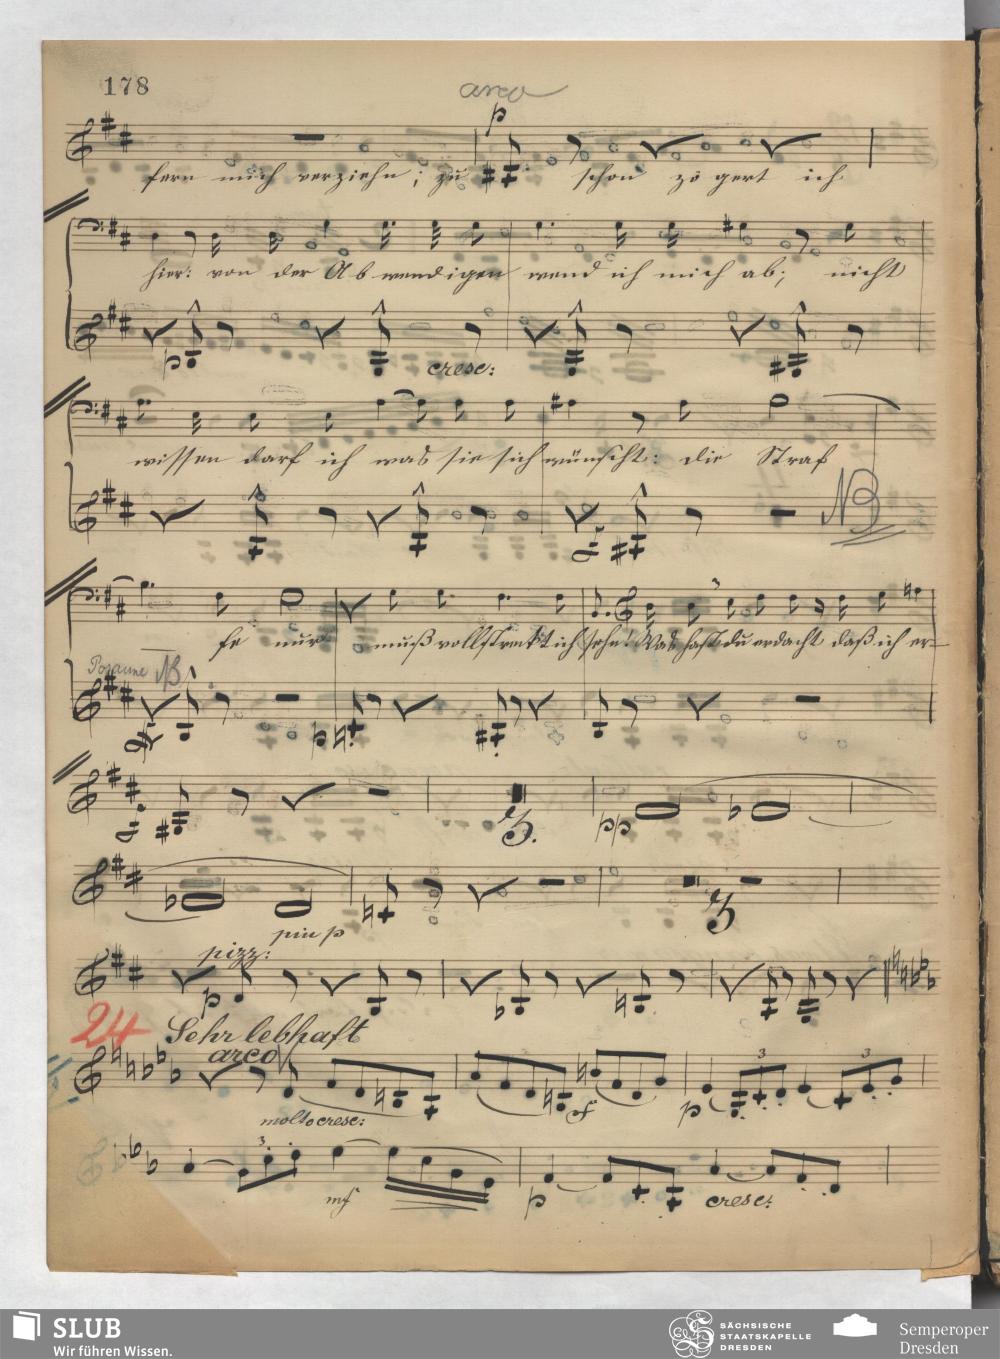 178
arco
p
fern mich verziehn; zu schon zögert ich
hier: von der Abwendigen wend ich mich ab; nicht
p cresc:
wissen darf ich was sie sich wünscht: die Straf
NB
fe nur muß vollstreckt ich sehn! Was hast du erdacht daß ich er-
3
Posaune NB
p
3.
pp
3
piu p
pizz:
p
24 Sehr lebhaft
arco
3 3
molto cresc: sf p
3.
mf p cresc:
SLUB
Wir führen Wissen.
SÄCHSISCHE
STAATSKAPELLE
DRESDEN
Semperoper
Dresden